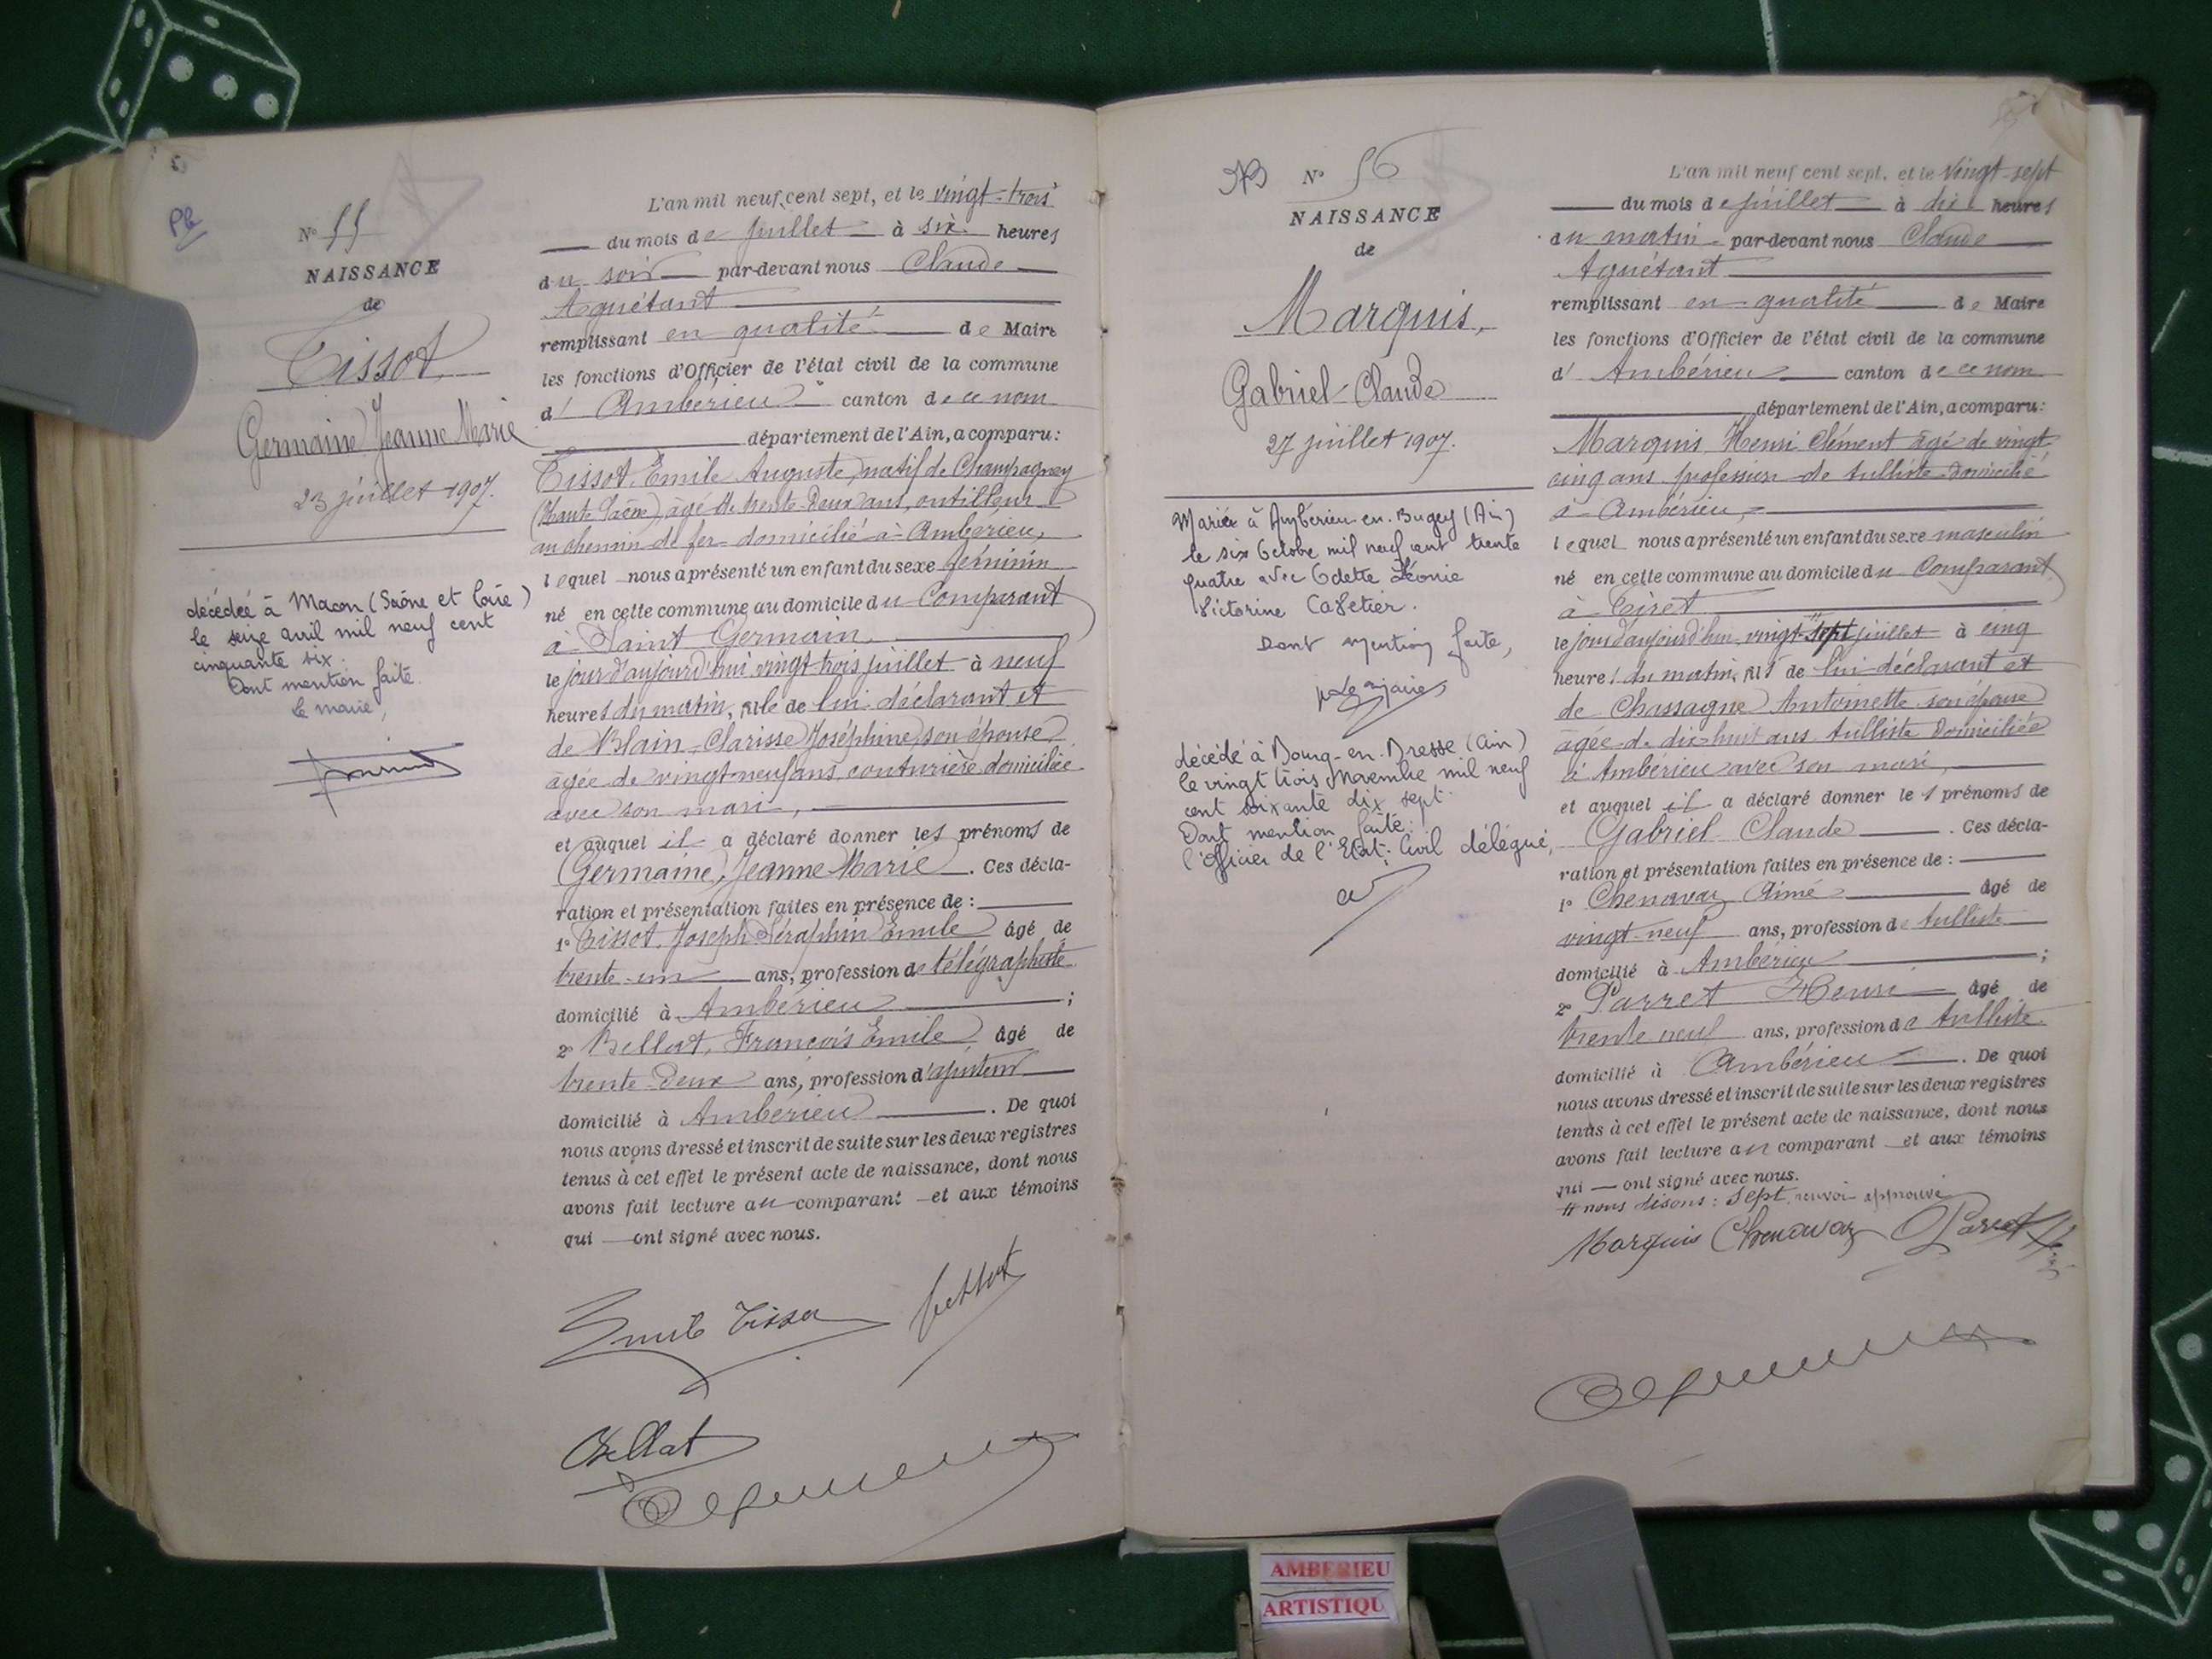 Pb
N° 55
NAISSANCE
de
Tissot
Germaine Jeanne Marie
23 juillet 1907.
décédée à Macon (Saône et Loire)
le seize avril mil neuf cent
cinquante six.
Dont mention faite.
le maire,
L'an mil neuf cent sept, et le vingt-trois
du mois de juillet à six heures
du soir par-devant nous Claude
Aguétant
remplissant en qualité de Maire
les fonctions d'Officier de l'état civil de la commune
d' Ambérieu canton de ce nom
département de l'Ain, a comparu:
Tissot Emile Auguste, natif de Champagney
(Haute Saône), âgé de trente-deux ans, outilleur
au chemin de fer domicilié à Ambérieu,
lequel nous a présenté un enfant du sexe féminin
né en cette commune au domicile du Comparant
à Saint Germain,
le jour d'aujourd'hui vingt trois juillet à neuf
heures du matin, fille de lui déclarant et
de Blain Clarisse Joséphine, son épouse
âgée de vingt-neuf ans, couturière domiciliée
avec son mari,
et auquel il a déclaré donner les prénoms de
Germaine, Jeanne Marie. Ces décla-
ration et présentation faites en présence de :
1° Tissot, Joseph Séraphin Emile âgé de
trente-un ans, profession de télégraphiste
domicilié à Ambérieu ;
2° Bellat, François Emile âgé de
trente-deux ans, profession d'ajusteur
domicilié à Ambérieu. De quoi
nous avons dressé et inscrit de suite sur les deux registres
tenus à cet effet le présent acte de naissance, dont nous
avons fait lecture au comparant et aux témoins
qui ont signé avec nous.
Emile Tissot
Bellat
N° 56
NAISSANCE
de
Marquis,
Gabriel-Claude
27 juillet 1907.
Marié à Ambérieu-en-Bugey (Ain)
le six Octobre mil neuf cent trente
quatre avec Odette Léonie
Victorine Cafetier.
Dont mention faite,
décédé à Bourg-en-Bresse (Ain)
le vingt trois Novembre mil neuf
cent soixante dix sept.
Dont mention faite:
l'Officier de l'Etat-Civil délégué,
L'an mil neuf cent sept, et le vingt-sept
du mois de juillet à dix heures
du matin par-devant nous Claude
Aguétant
remplissant en qualité de Maire
les fonctions d'Officier de l'état civil de la commune
d' Ambérieu canton de ce nom
département de l'Ain, a comparu:
Marquis Henri Clément âgé de vingt-
cinq ans profession de tulliste domicilié
à Ambérieu,
lequel nous a présenté un enfant du sexe masculin
né en cette commune au domicile du Comparant
à Tiret
le jour d'aujourd'hui vingt-sept juillet à cinq
heures du matin, fils de lui déclarant et
de Chassagne Antoinette son épouse
âgée de dix-huit ans tulliste domiciliée
à Ambérieu avec son mari,
et auquel il a déclaré donner les prénoms de
Gabriel Claude. Ces décla-
ration et présentation faites en présence de :
1° Chenavaz Aimé âgé de
vingt-neuf ans, profession de tulliste
domicilié à Ambérieu ;
2° Parret Henri âgé de
trente neuf ans, profession de tulliste
domicilié à Ambérieu. De quoi
nous avons dressé et inscrit de suite sur les deux registres
tenus à cet effet le présent acte de naissance, dont nous
avons fait lecture au comparant et aux témoins
qui ont signé avec nous.
# nous disons : sept. renvoi approuvé
Marquis Chenavaz Parret
AMBERIEU
ARTISTIQU